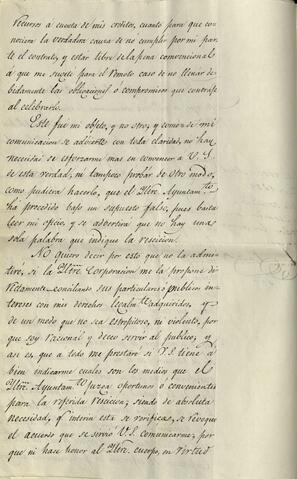 recursos á cuenta de mis creditos, cuanto para que co-
nociera la verdadera causa de no cumplir por mi par-
te el contrato, y estar libre de la pena convencional
á que me sugeté para el remoto caso de no llenar de-
bidamente las obligaciones ó compromisos que contraje
al celebrarlo.
Este fue mi objeto, y no otro, y como de mi
comunicacion se advierte con toda claridad, no hay
necesidad de esforzarme mas en convencer a V. S.
de esta verdad, ni tampoco probar de otro modo,
como pudiera hacerlo, que el Yltre. Ayuntamto.
ha procedido bajo un supuesto falso, pues basta
leer mi oficio, y se advertirá que no hay una
sola palabra que indique la rescicion.
No quiero decir por esto que no la admi-
tiré, si la Yltre. Corporacion me la propone di-
rectamente conciliando sus particulares ó publicos in-
tereses con mis derechos legalmte. adquiridos, y
de un modo que no sea estrepitoso, ni violento, por
que soy racional y deceo servir al publico, y
asi es, que á todo me prestaré si V. S. tiene á
bien indicarme cuales son los medios que el
Yltre. Ayuntamto. juzga oportunos ó convenientes
para la referida rescicion; siendo de absoluta
necesidad, q. interin esta se verifica, se revoque
el acuerdo que se sirvió V. S. comunicarme; por
que ni hace honor al Yltre. cuerpo, en virtud